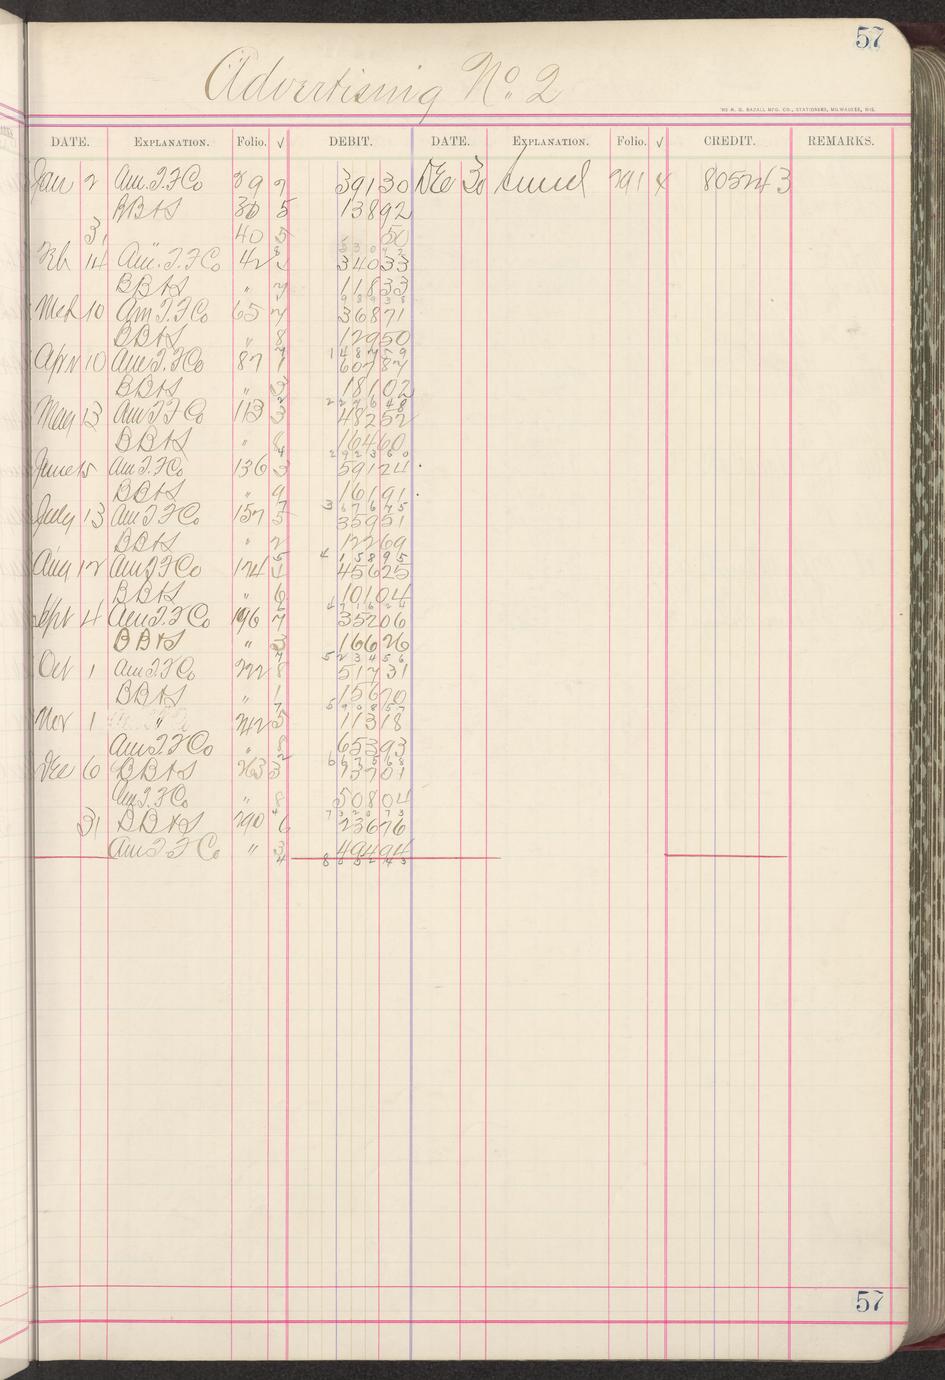 57
Advertising No. 2
DATE. EXPLANATION. Folio. √ DEBIT. DATE. EXPLANATION. Folio. √ CREDIT. REMARKS.
Jan 2 Am. I. F Co 7 391 30 Dec 30 291 4 8052 43
BB&S 30 5 138 92
31 40 5 50
530 72
Feb 14 Am. I. F Co 42 340 33
BB&S " 7 118 33
989 38
Mch 10 Am I. F Co 65 7 368 71
BB&S " 8 129 50
1487 59
Apr 10 Am I. F Co 87 1 607 87
BB&S " 3 181 02
2276 48
May 13 Am I F Co 113 3 482 52
BB&S " 8 164 60
2923 60
June 15 Am I. F Co 136 3 591 24
BB&S " 9 161 91
3676 75
July 13 Am I F Co 157 5 359 51
BB&S " 2 122 69
4158 95
Aug 12 Am I F Co 174 4 456 25
BB&S " 6 101 04
4716 24
Sept 4 Am I. F Co 196 7 352 06
BB&S " 3 166 26
5234 56
Oct 1 Am I. F Co 222 8 517 31
BB&S " 1 156 70
5908 57
Nov 1 " 242 5 113 18
Am I. F Co " 8 653 93
6675 68
Dec 6 BB&S 263 3 137 01
Am I. F Co " 8 508 04
7320 73
31 BB&S 290 6 236 76
Am I F Co " 3 494 94
8052 43
57